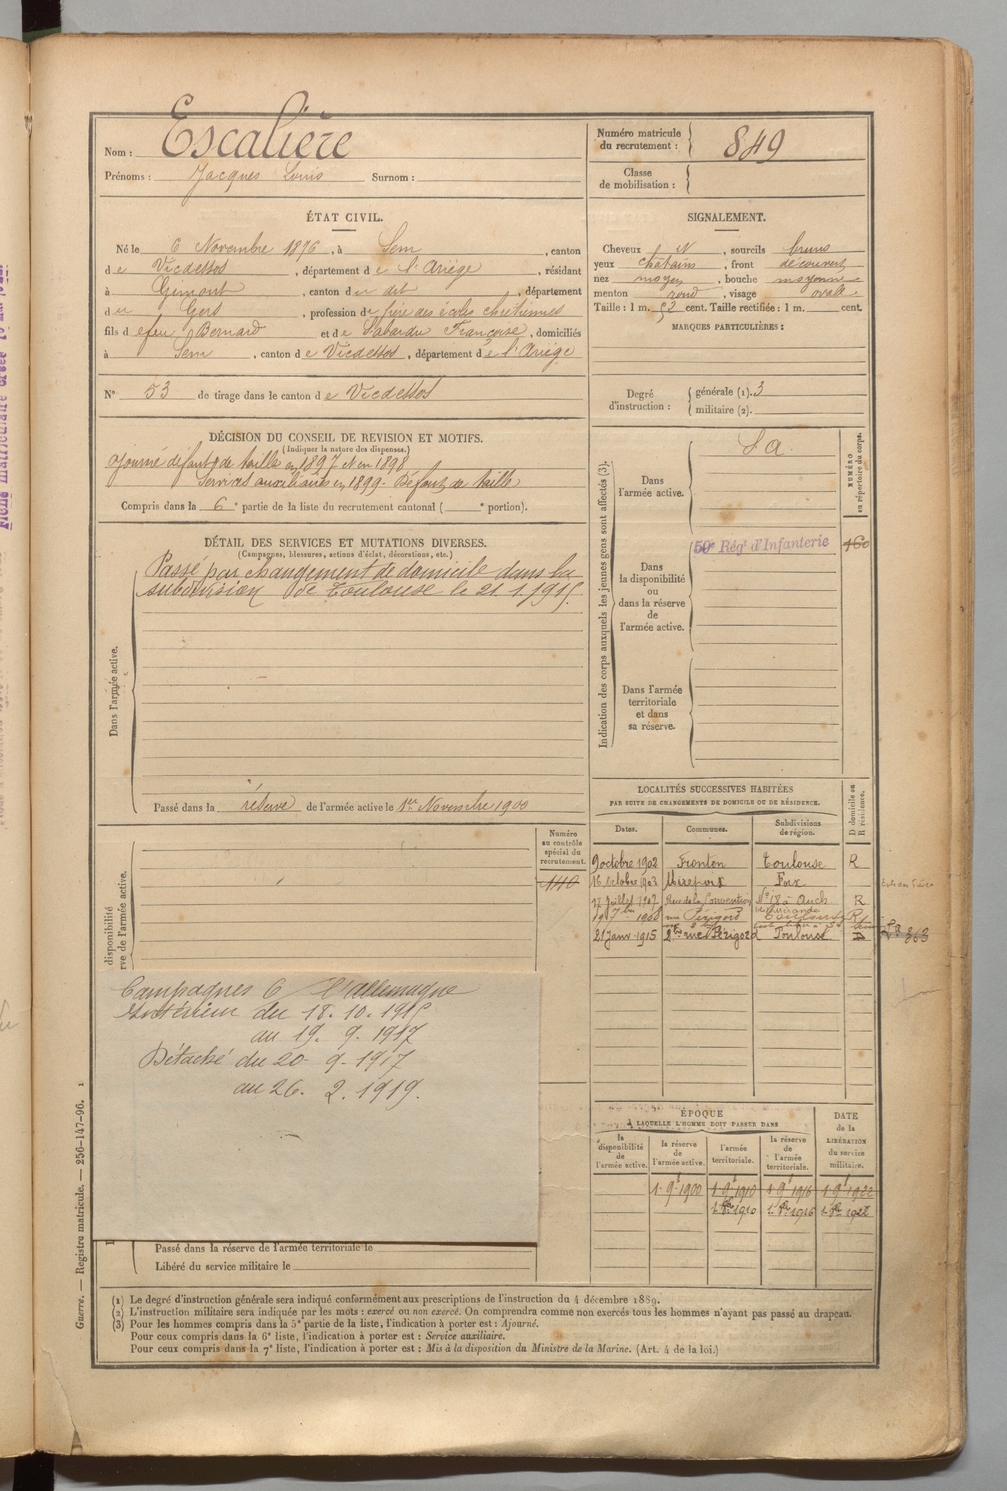 Nom : Escalière
Prénoms : Jacques Louis Surnom :
Numéro matricule du recrutement : 849
Classe de mobilisation :
ÉTAT CIVIL.
Né le 6 Novembre 1876, à Sem, canton
de Vicdessos, département de l'Ariège, résidant
à Gimont, canton du dit, département
du Gers, profession de frère des écoles chrétiennes
fils de feu Bernard et de Françoise, domiciliés
à Sem, canton de Vicdessos, département de l'Ariège
N° 53 de tirage dans le canton de Vicdessos
SIGNALEMENT.
Cheveux N, sourcils bruns
yeux chatains, front découvert
nez moyen, bouche moyenne
menton rond, visage ovale
Taille : 1 m. 52 cent. Taille rectifiée : 1 m. cent.
MARQUES PARTICULIÈRES :
Degré d'instruction : générale (1). 3
militaire (2).
DÉCISION DU CONSEIL DE REVISION ET MOTIFS.
(Indiquer la nature des dispenses.)
Ajourné défaut de taille en 1897 et en 1898
Services auxiliaires en 1899 - Défaut de taille
Compris dans la 6e partie de la liste du recrutement cantonal ( e portion).
DÉTAIL DES SERVICES ET MUTATIONS DIVERSES.
(Campagnes, blessures, actions d'éclat, décorations, etc.)
Dans l'armée active.
Passé par changement de domicile dans la
subdivision de Toulouse le 21.1.1915.
Passé dans la réserve de l'armée active le 1er Novembre 1900
Indication des corps auxquels les jeunes gens sont affectés (3).
NUMÉRO au répertoire du corps.
Dans l'armée active.
S. A.
Dans la disponibilité ou dans la réserve de l'armée active.
59e Régt d'Infanterie
160
Dans l'armée territoriale et dans sa réserve.
Numéro au contrôle spécial du recrutement.
110
disponibilité
rve de l'armée active.
LOCALITÉS SUCCESSIVES HABITÉES
PAR SUITE DE CHANGEMENTS DE DOMICILE OU DE RÉSIDENCE.
D domicile ou R résidence.
Dates. Communes. Subdivisions de région.
9 octobre 1902 Fronton Toulouse R
16 octobre 1903 Mirepoix Foix
17 Juillet 1907 Rue de la Convention N° 18 à Auch R
1908 rue Périgord Toulouse R
21 Janv 1915 2 bis rue Périgord Toulouse D
863
Campagnes C l'allemagne
Intérieur du 18.10.1915
au 19. 9. 1917
Détaché du 20 9-1917
au 26. 2. 1919.
ÉPOQUE
À LAQUELLE L'HOMME DOIT PASSER DANS
la disponibilité de l'armée active.
la réserve de l'armée active.
l'armée territoriale.
la réserve de l'armée territoriale.
DATE de la LIBÉRATION du service militaire.
1. 9t 1900 1. 9t 1910 1. 9t 1916 1. 9t 1922
1910 1916 1922
Passé dans la réserve de l'armée territoriale le
Libéré du service militaire le
(1) Le degré d'instruction générale sera indiqué conformément aux prescriptions de l'instruction du 4 décembre 1889.
(2) L'instruction militaire sera indiquée par les mots : exercé ou non exercé. On comprendra comme non exercés tous les hommes n'ayant pas passé au drapeau.
(3) Pour les hommes compris dans la 5e partie de la liste, l'indication à porter est : Ajourné.
Pour ceux compris dans la 6e liste, l'indication à porter est : Service auxiliaire.
Pour ceux compris dans la 7e liste, l'indication à porter est : Mis à la disposition du Ministre de la Marine. (Art. 4 de la loi.)
Guerre. — Registre matricule. — 256-147-96. 1